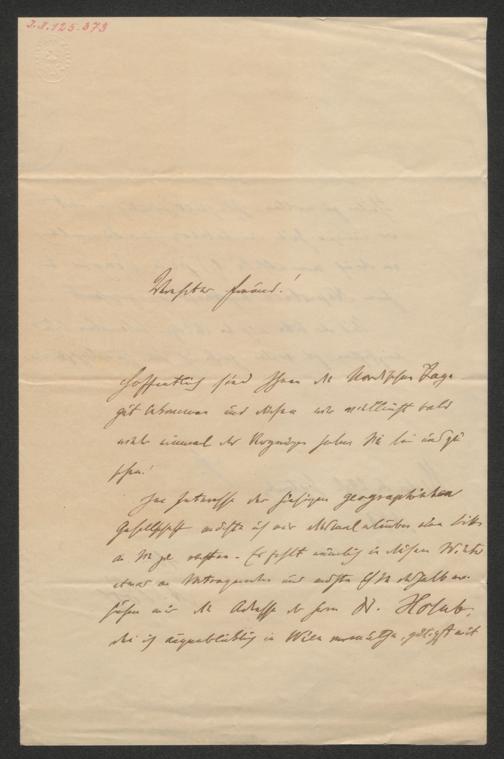 J.N. 125.373
Verehrter Freund!
Hoffentlich sind Ihnen die Nordischen Tage
gut bekommen und dürfen wir vielleicht bald
wieder einmal das Vergnügen haben Sie bei uns zu
sehen!
Im Interesse der hiesigen geographischen
Gesellschaft möchte ich mir erlauben eine Bitte
an Sie zu richten. Es fehlt nämlich in diesem Winter
etwas an Vortragenden und möchte ich Sie deshalb er-
suchen mir die Adresse des Herrn Dr. Holub,
den ich augenblicklich in Wien vermuthe, gütigst mit